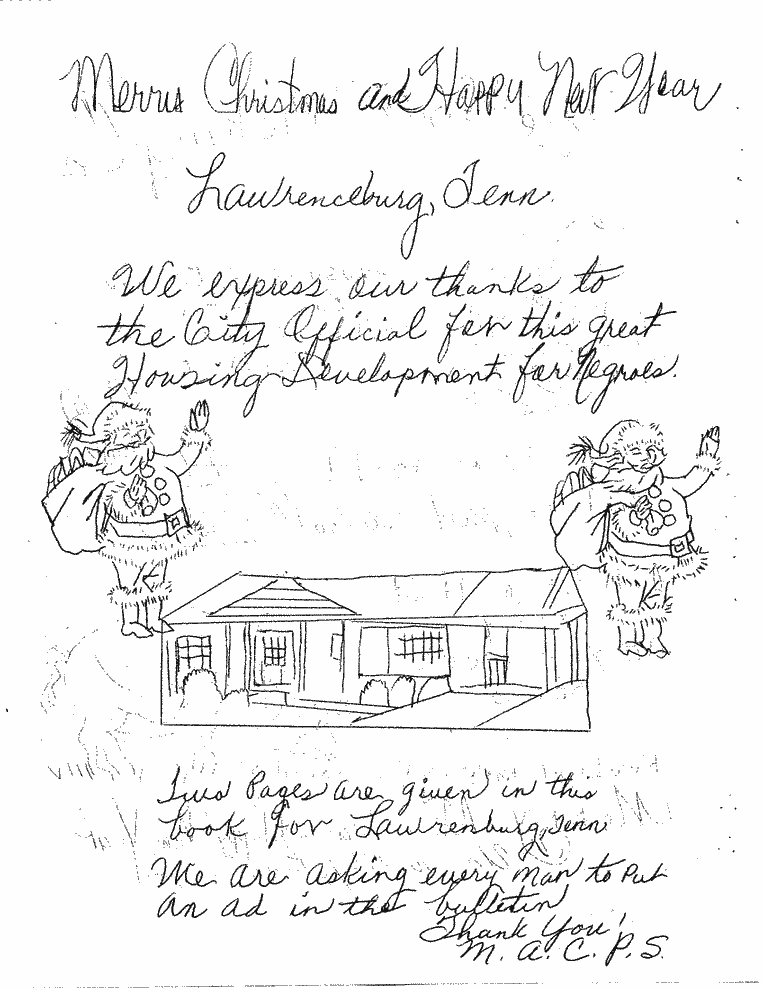 Merrys Christmas and Happy New Year
Lawrenceburg, Tenn.
We express our thanks to
the City Official for this great
Housing Development for Negroes.
Two Pages are given in this
book for Lawrenburg, Tenn
We are asking every man to Put
an ad in the bulletin
Thank You!
M. A. C. P. S.